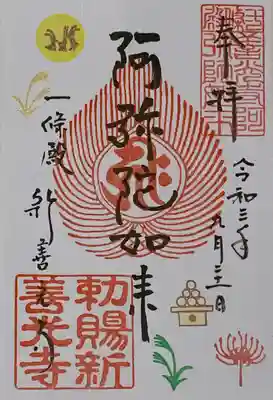 奉拝
令和三年九月二十一日
阿弥陀如来
一條殿 新善光寺
勅賜新
善光寺